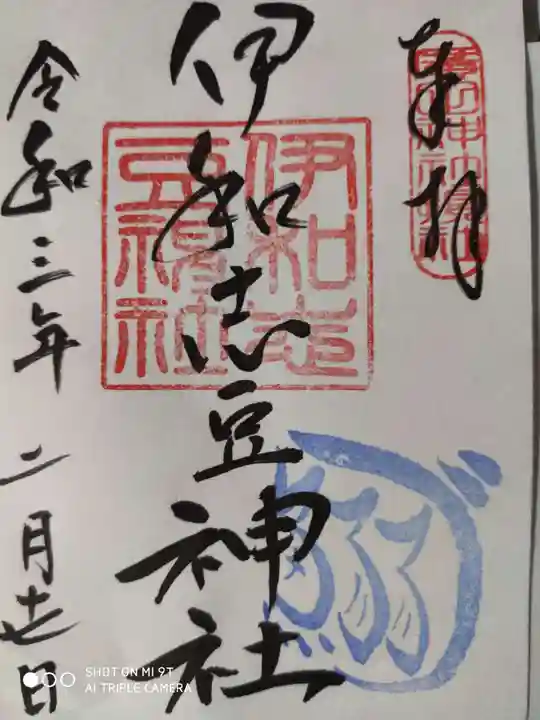 奉拝
伊和志豆神社
伊和志
豆神社
鰯
令和三年二月廿七日
SHOT ON MI 9T
AI TRIPLE CAMERA